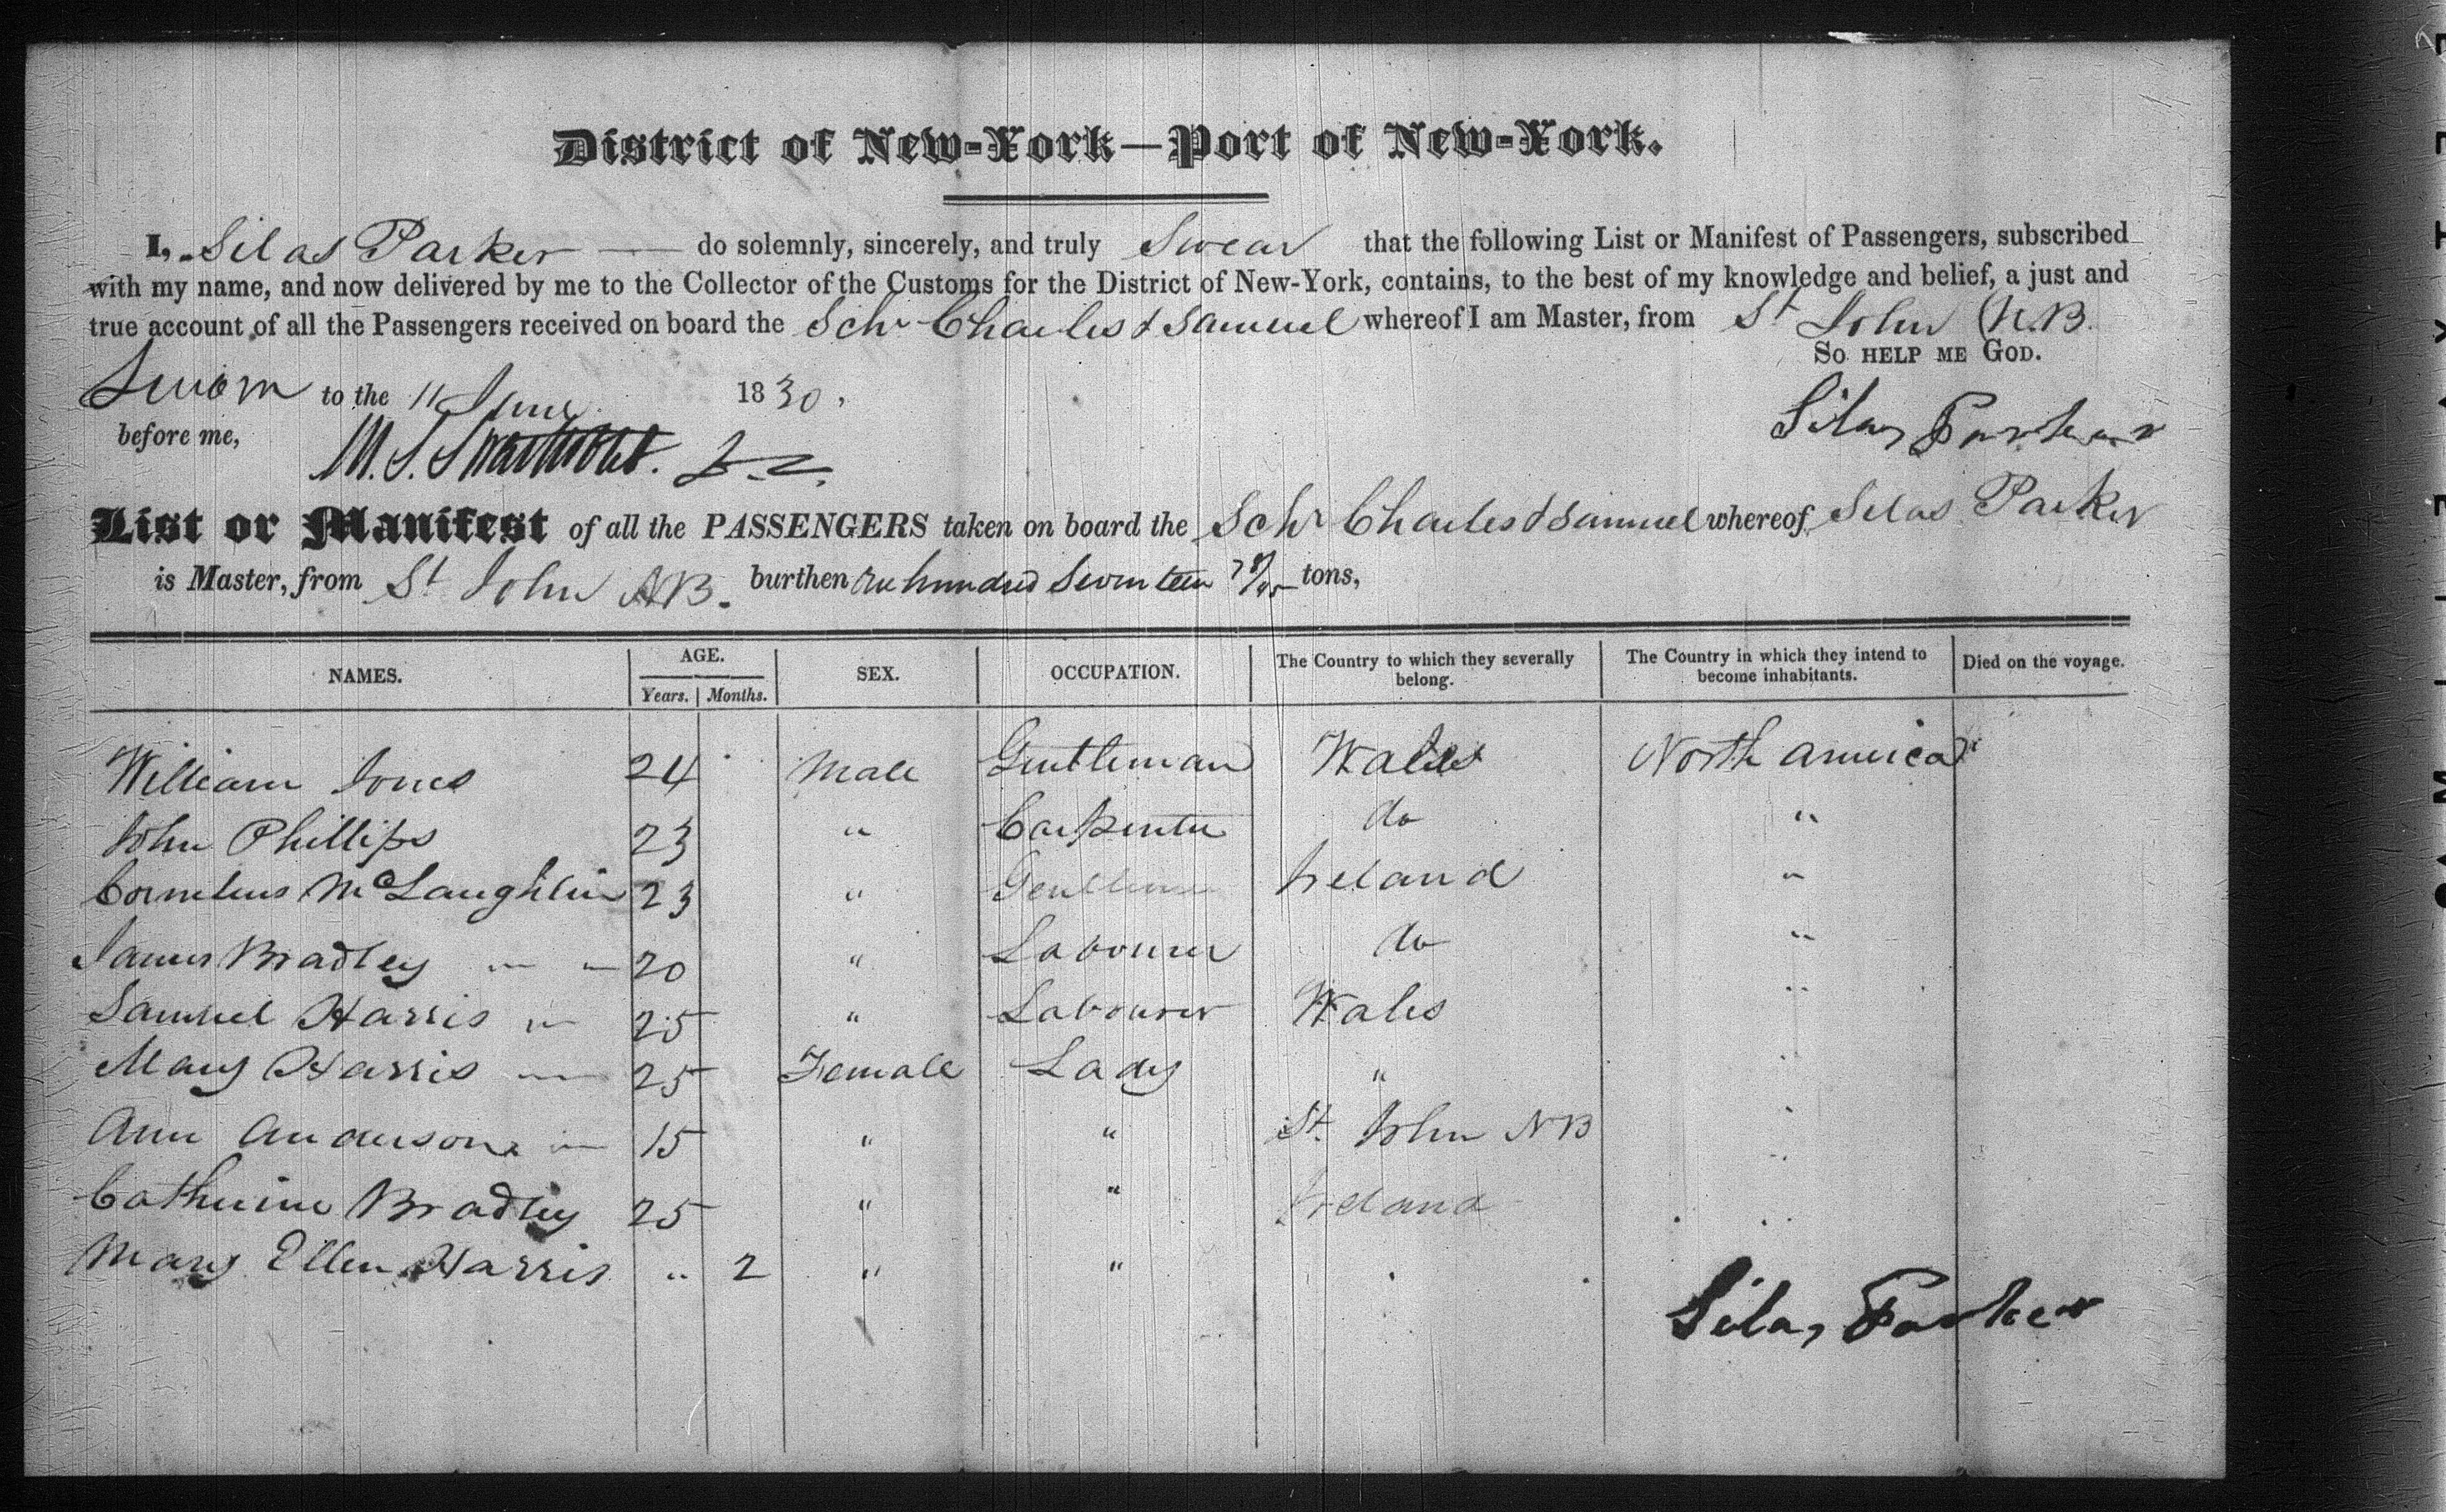 District of New-York—Port of New-York.
I, Silas Parker — do solemnly, sincerely, and truly Swear that the following List or Manifest of Passengers, subscribed
with my name, and now delivered by me to the Collector of the Customs for the District of New-York, contains, to the best of my knowledge and belief, a just and
true account of all the Passengers received on board the Schr Charles & Samuel whereof I am Master, from St John (N.B.
So help me God.
Sworn to the 11 June 1830,
before me,
M. S. Swartwout.
Silas Parker
List or Manifest of all the PASSENGERS taken on board the Schr Charles & Samuel whereof Silas Parker
is Master, from St John NB. burthen One hundred Seventeen 78/95 tons,
NAMES. AGE. SEX. OCCUPATION. The Country to which they severally belong. The Country in which they intend to become inhabitants. Died on the voyage.
Years. Months.
William Jones 24 Male Gentleman Wales North America
John Phillips 23 " Carpenter do "
Cornelius McLaughlin 23 " Gentleman Ireland "
James Bradley 20 " Labourer do "
Samuel Harris 25 " Labourer Wales "
Mary Harris 25 Female Lady " "
Ann Anderson 15 " " St. John NB "
Catherine Bradley 25 " " Ireland "
Mary Ellen Harris " 2 " "
Silas Parker